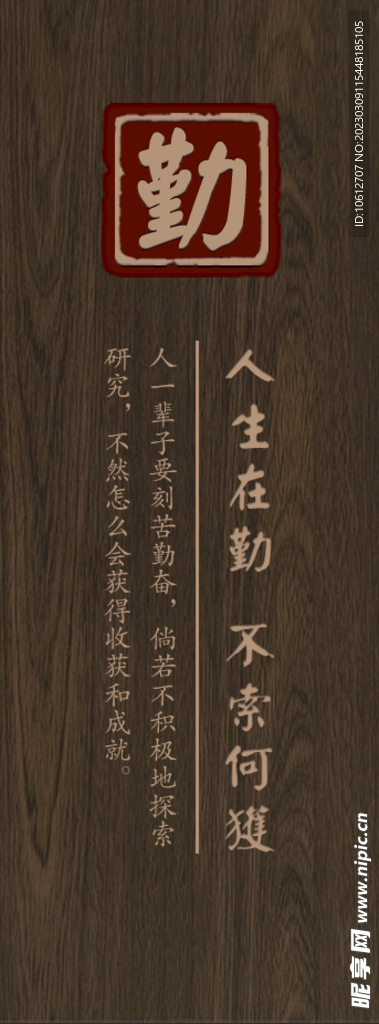 勤
人生在勤 不索何獲
人一辈子要刻苦勤奋，倘若不积极地探索
研究，不然怎么会获得收获和成就。
ID:10612707 NO:20230309115448185105
昵享网 www.nipic.cn